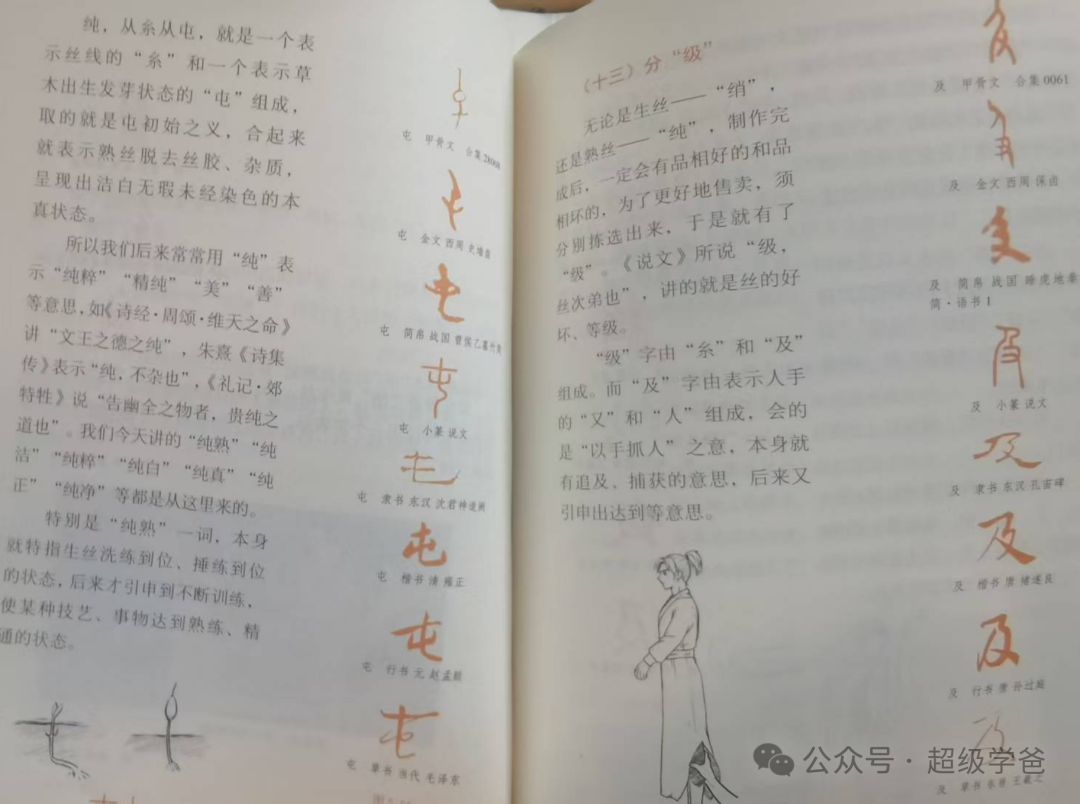 纯，从糸从屯，就是一个表
示丝线的“糸”和一个表示草
木出生发芽状态的“屯”组成，
取的就是屯初始之义，合起来
就表示熟丝脱去丝胶、杂质，
呈现出洁白无瑕未经染色的本
真状态。
所以我们后来常常用“纯”表
示“纯粹”“精纯”“美”“善”
等意思，如《诗经·周颂·维天之命》
讲“文王之德之纯”，朱熹《诗集
传》表示“纯，不杂也”，《礼记·郊
特牲》说“告幽全之物者，贵纯之
道也”。我们今天讲的“纯熟”“纯
洁”“纯粹”“纯白”“纯真”“纯
正”“纯净”等都是从这里来的。
特别是“纯熟”一词，本身
就特指生丝洗练到位、捶练到位
的状态，后来才引申到不断训练，
使某种技艺、事物达到熟练、精
通的状态。
屯 甲骨文 合集
屯 金文 西周 史墙盘
屯 简帛 战国 曾侯乙墓竹简
屯 小篆 说文
屯 隶书 东汉 沈君神道阙
屯 楷书 清 雍正
屯 行书 元 赵孟頫
屯 草书 当代 毛泽东
（十三）分“级”
无论是生丝——“绡”，
还是熟丝——“纯”，制作完
成后，一定会有品相好的和品
相坏的，为了更好地售卖，须
分别拣选出来，于是就有了
“级”。《说文》所说“级，
丝次弟也”，讲的就是丝的好
坏、等级。
“级”字由“糸”和“及”
组成。而“及”字由表示人手
的“又”和“人”组成，会的
是“以手抓人”之意，本身就
有追及、捕获的意思，后来又
引申出达到等意思。
及 甲骨文 合集0061
及 金文 西周 保卣
及 简帛 战国 睡虎地秦
简·语书1
及 小篆 说文
及 隶书 东汉 孔宙碑
及 楷书 唐 褚遂良
及 行书 唐 孙过庭
及 草书 东晋 王羲之
公众号·超级学爸